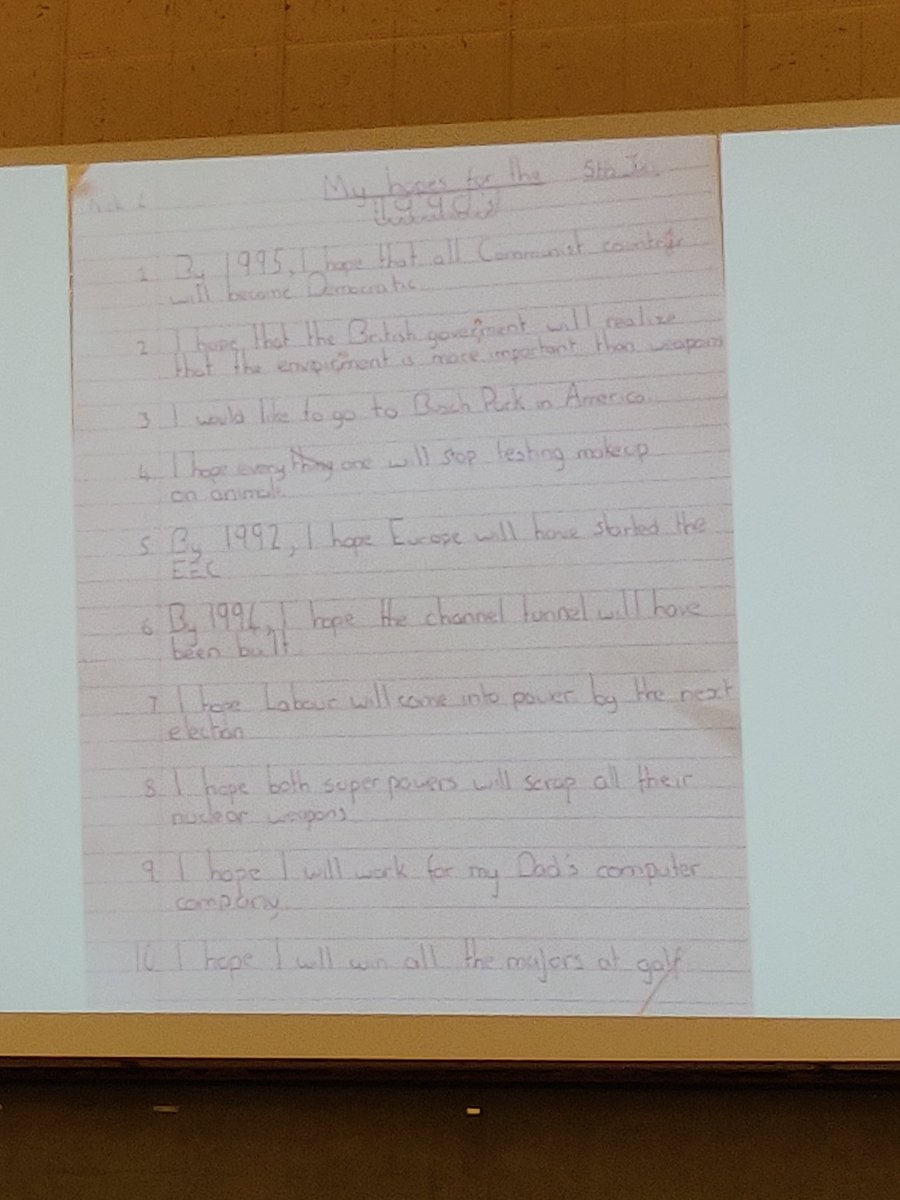 My hopes for the 5th Jan
1990s
1 By 1995, I hope that all Communist countrys
will become Democratic
2 I hope that the British goverment will realize
that the enviroment is more important than weapons
3 I would like to go to Busch Park in America.
4 I hope everything one will stop testing makeup
on animals
5 By 1992, I hope Europe will have started the
EEC
6 By 1994, I hope the channel tunnel will have
been built
7 I hope Labour will come into power by the next
election
8 I hope both super powers will scrap all their
nuclear weapons
9 I hope I will work for my Dad's computer
company
10 I hope I will win all the majors at golf